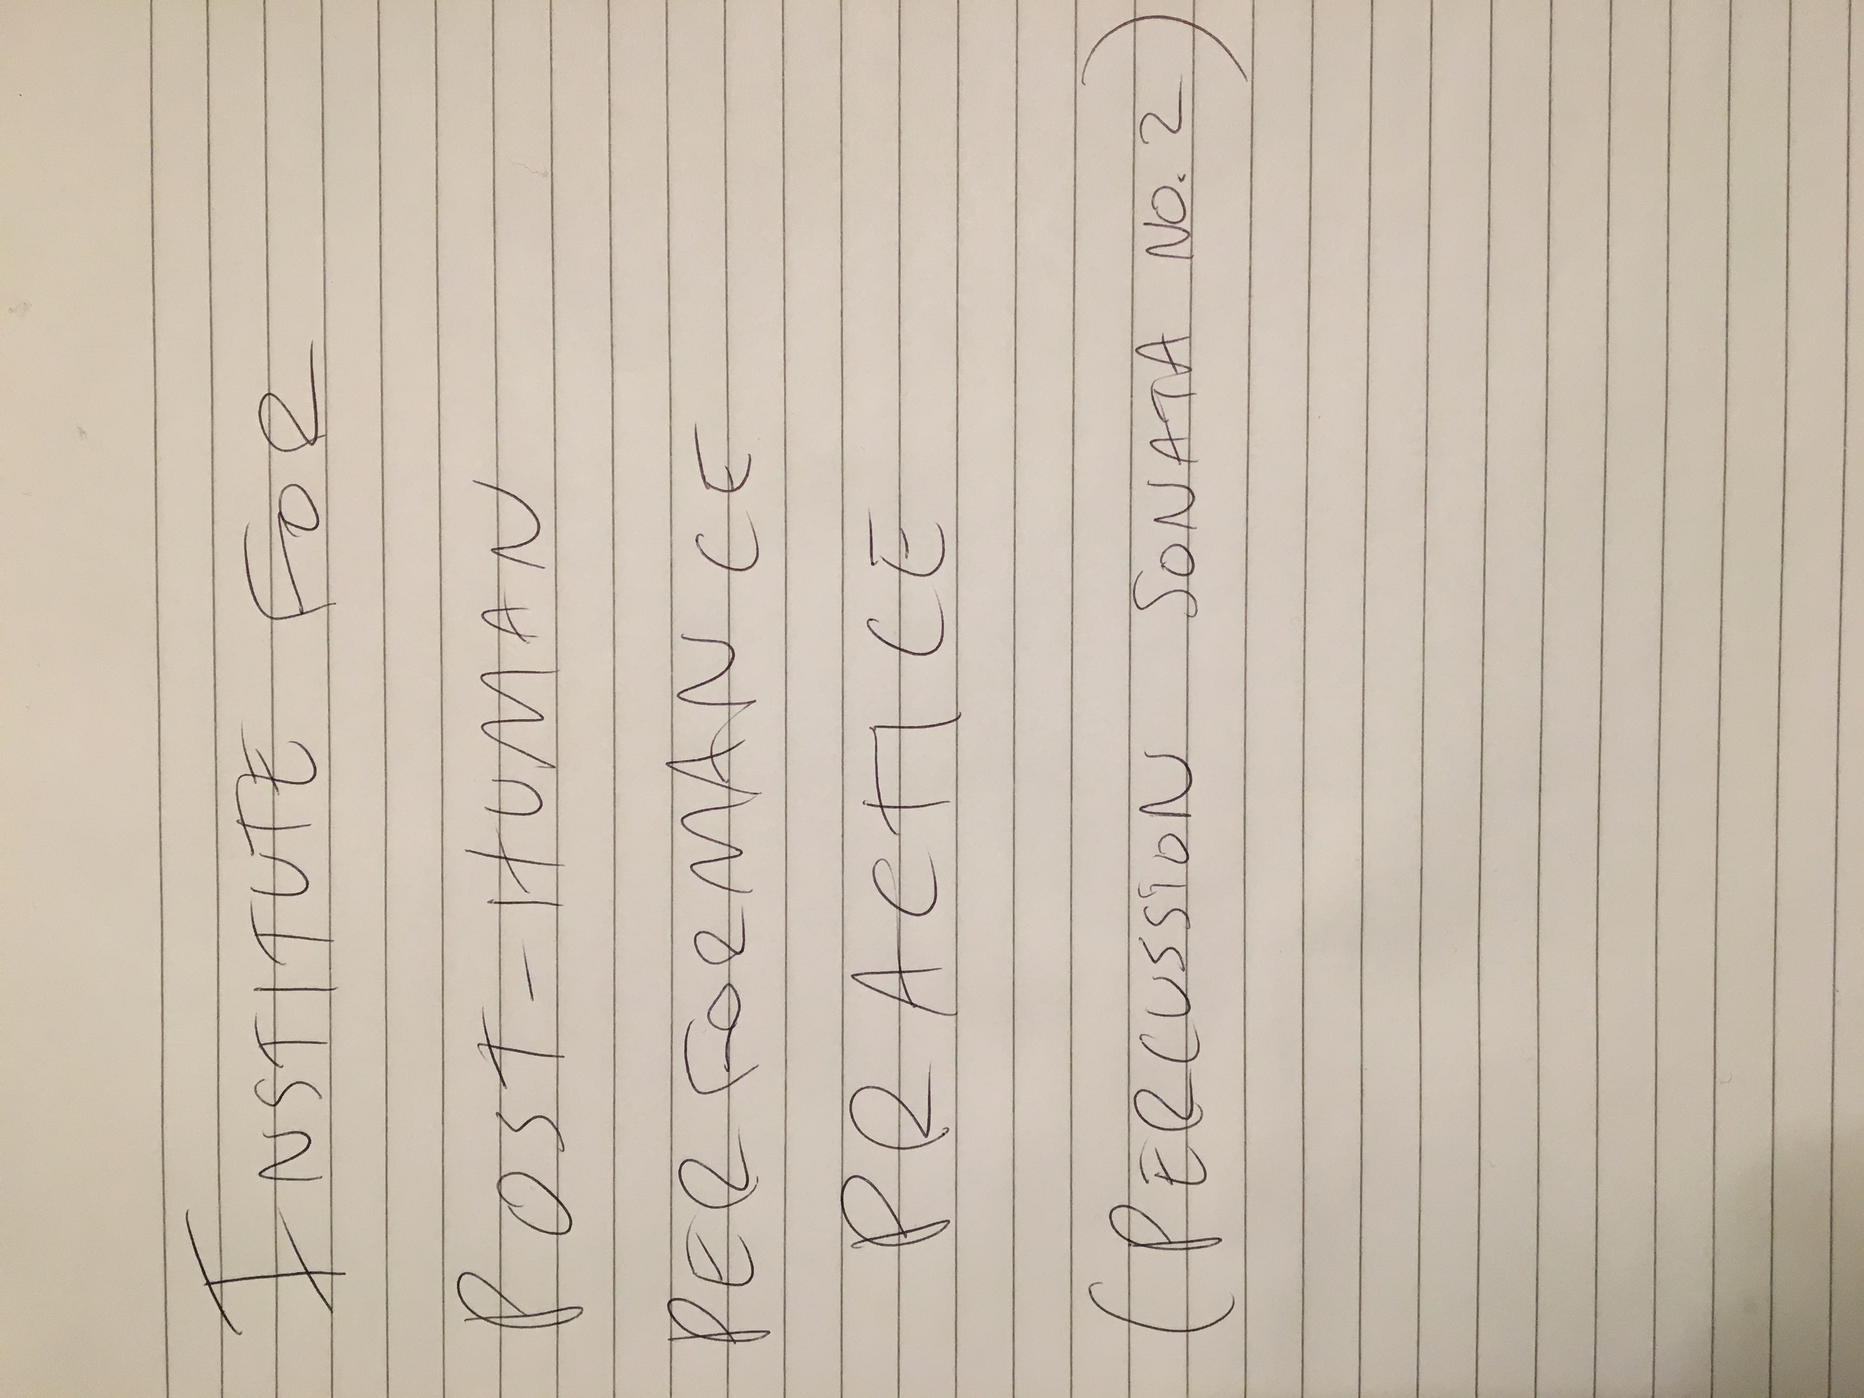 INSTITUTE FOR
POST-HUMAN
PERFORMANCE
PRACTICE
(PERCUSSION SONATA NO. 2)